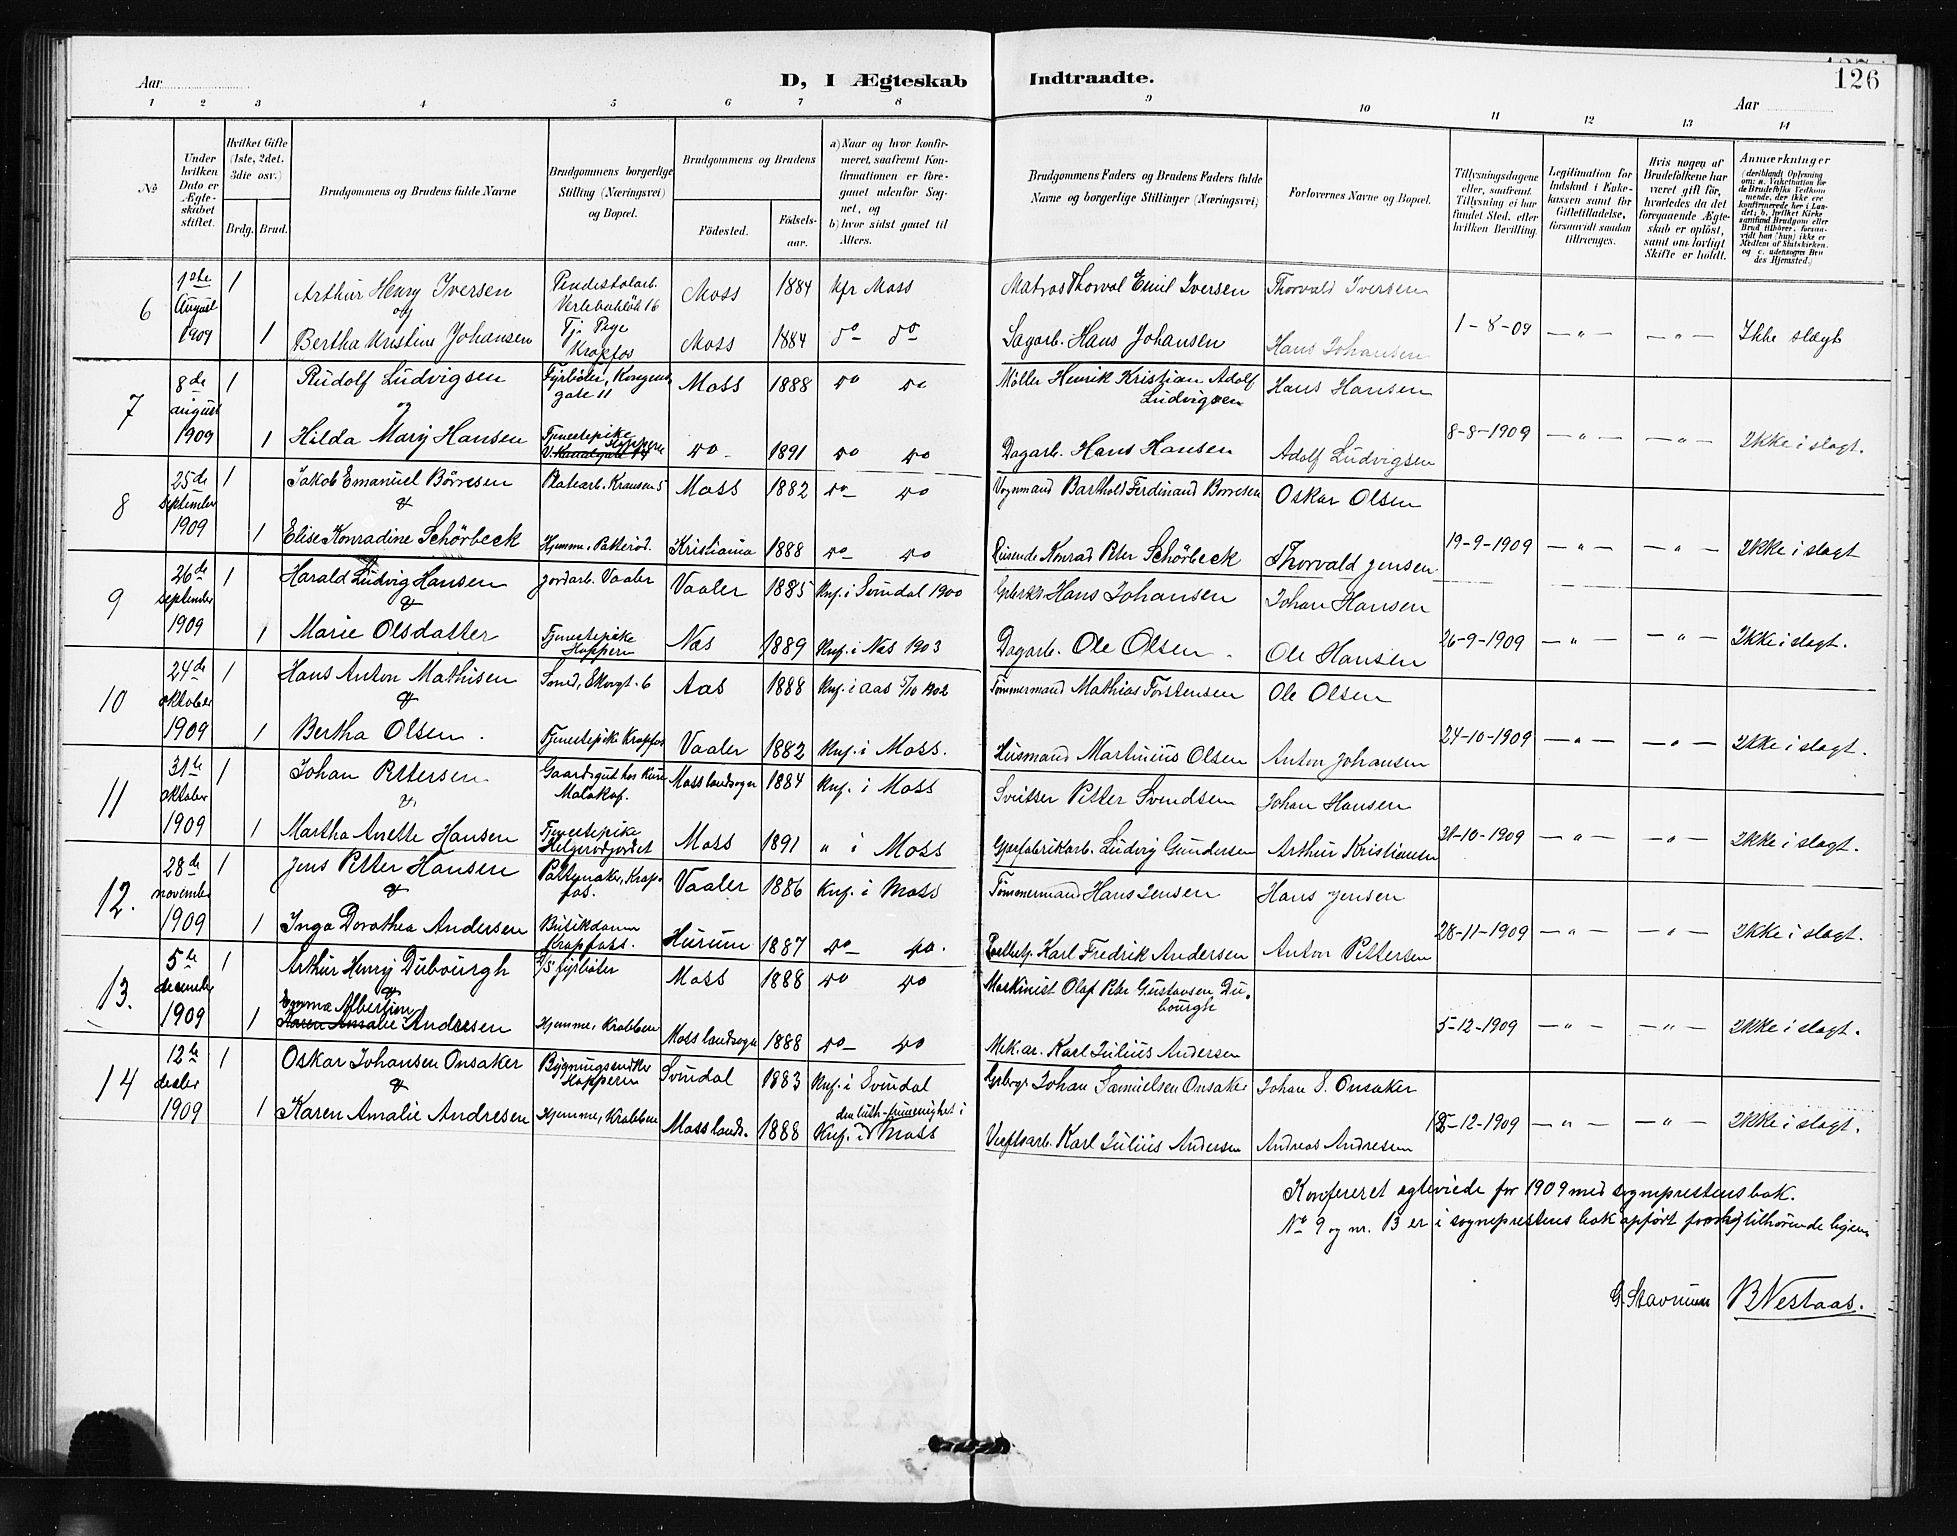 126
Aar
D, I Ægteskab Indtraadte.
Aar
1 2 3 4 5 6 7 8 9 10 11 12 13 14
No
Under hvilken Dato er Ægteskabet stiftet.
Hvilket Gifte (1ste, 2det. 3die osv.)
Brdg. Brud.
Brudgommens og Brudens fulde Navne
Brudgommens borgerlige Stilling (Næringsvei) og Bopæl.
Brudgommens og Brudens
Fødested.
Fødselsaar.
a) Naar og hvor konfirmeret, saafremt Konfirmationen er foregaaet udenfor Sognet, og
b) hvor sidst gaaet til Alters.
Brudgommens Faders og Brudens Faders fulde Navne og borgerlige Stillinger (Næringsvei)
Forlovernes Navne og Bopæl.
Tillysningsdagene eller, saafremt Tillysning ei har fundet Sted, efter hvilken Bevilling.
Legitimation for Indskud i Enkekassen samt for Giftetilladelse, forsaavidt saadan tiltrænges.
Hvis nogen af Brudefolkene har været gift før, hvorledes da det foregaaende Ægteskab er opløst, samt om lovligt Skifte er holdt.
Anmærkninger
6 1ste August 1909 1 Arthur Henry Iversen Moss 1884 Kfr Moss Matros Thorval Emil Iversen Thorvald Iversen
og
1 Bertha Kristine Johansen Tj. Pige Krapfos Moss 1884 do do Sagarb. Hans Johansen Hans Johansen 1-8-09 — " — — " — Ikke slægt
7 8de august 1909 1 Rudolf Ludvigsen Fyrbøter, Kongensgate 11 Moss 1888 do do Møller Henrik Kristian Adolf Ludvigsen Hans Hansen
og
1 Hilda Mary Hansen Tjenestepike Hoppern do 1891 do do Dagarb. Hans Hansen Adolf Ludvigsen 8-8-1909 — " — — " — Ikke i slægt.
8 25de september 1909 1 Jakob Emanuel Børresen Platearb. Kransen 5 Moss 1882 do do Vognmand Barthold Ferdinand Børresen Oskar Olsen
&
1 Elise Konradine Schørbeck Hjemme, Patterød. Kristiania 1888 do do Reisende Konrad Peter Schørbeck Thorvald Jensen 19-9-1909 — " — — " — Ikke i slægt
9 26de september 1909 1 Harald Ludvig Hansen Jordarb. Vaaler Vaaler 1885 Knf. i Svindal 1900 Hans Johansen Johan Hansen
&
1 Marie Olsdatter Tjenestepike Hoppern Nes 1889 Knf. i Nes 1903 Dagarb. Ole Olsen Ole Hansen 26-9-1909 — " — — " — Ikke i slægt.
10 24de oktober 1909 1 Hans Anton Mathisen Smed, Skovgt. 6 Aas 1888 Knf. i Aas 5/10 1902 Tømmermand Mathias Torstensen Ole Olsen
&
1 Bertha Olsen. Tjenestepike Krapfos Vaaler 1882 Knf. i Moss. Husmand Martinius Olsen Anton Johansen 24-10-1909 — " — — " — Ikke i slægt.
11 31te oktober 1909 1 Johan Pettersen Gaardsgut hos Kure Moss landsogn 1884 Knf. i Moss Sveitser Petter Svendsen Johan Hansen
&
1 Martha Anette Hansen Tjenestepike Helgerødjordet Moss 1891 " i Moss Ludvig Gundersen Arthur Kristiansen 31-10-1909 — " — — " — Ikke i slægt.
12. 28de november 1909 1 Jens Petter Hansen Krapfos. Vaaler 1886 Knf. i Moss Tømmermand Hans Jensen Hans Jensen
&
1 Inga Dorothea Andersen Butikdame Krapfoss. Hurum 1887 do do. Karl Fredrik Andersen Anton Pettersen 28-11-1909 — " — — " — Ikke i slægt.
13. 5te december 1909 1 Arthur Henry Dubourgh fyrbøter Moss 1888 do do Maskinist Olaf Peter Gustavsen Dubourgh
&
Emma Albertine
1 Karen Amalie Andresen Hjemme, Krabben Moss landsogn 1888 do do Mek. ar. Karl Julius Andersen 5-12-1909 — " — — " — Ikke i slægt.
14 12te desbr 1909 1 Oskar Johansen Onsaker Bygningssnedker Hoppern Svindal 1883 Knf. i Svindal Johan Samuelsen Onsaker Johan S. Onsaker
&
1 Karen Amalie Andresen Hjemme, Krabben Moss lands. 1888 Knf. i den luth-frimenighet i Moss Verftsarb. Karl Julius Andersen Andreas Andresen 12-12-1909 — " — — " — Ikke i slægt.
Konfereret egteviede for 1909 med sogneprestens bok.
No 9 og nr. 13 er i sogneprestens bok opført
G. Stavrum B Nestaas.